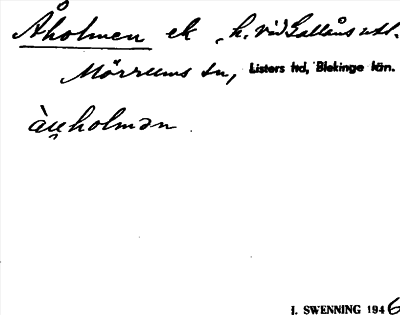 Åholmen ek, h. vid Gallåns utl.
Mörrums sn, Listers hd, Blekinge län.
àu̯holmən.
I. SWENNING 1946